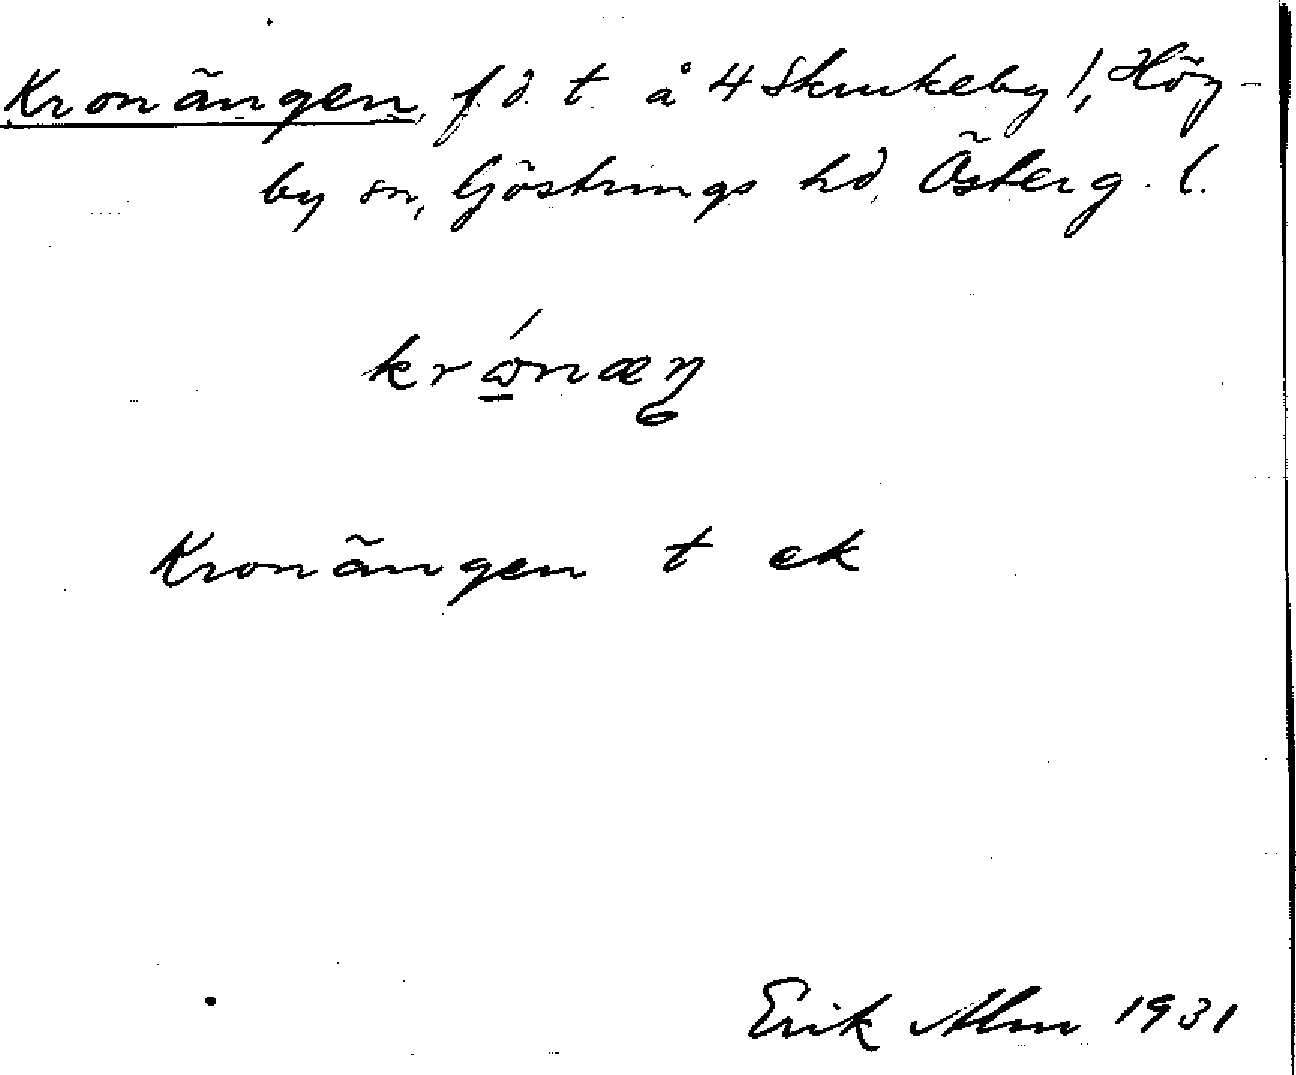 Kronängen, f. d. t å 4 Skrukeby 1, Hög-
by sn, Göstrings hd, Österg. l.
krónæŋ
Kronängen t ek
Erik Alm 1931